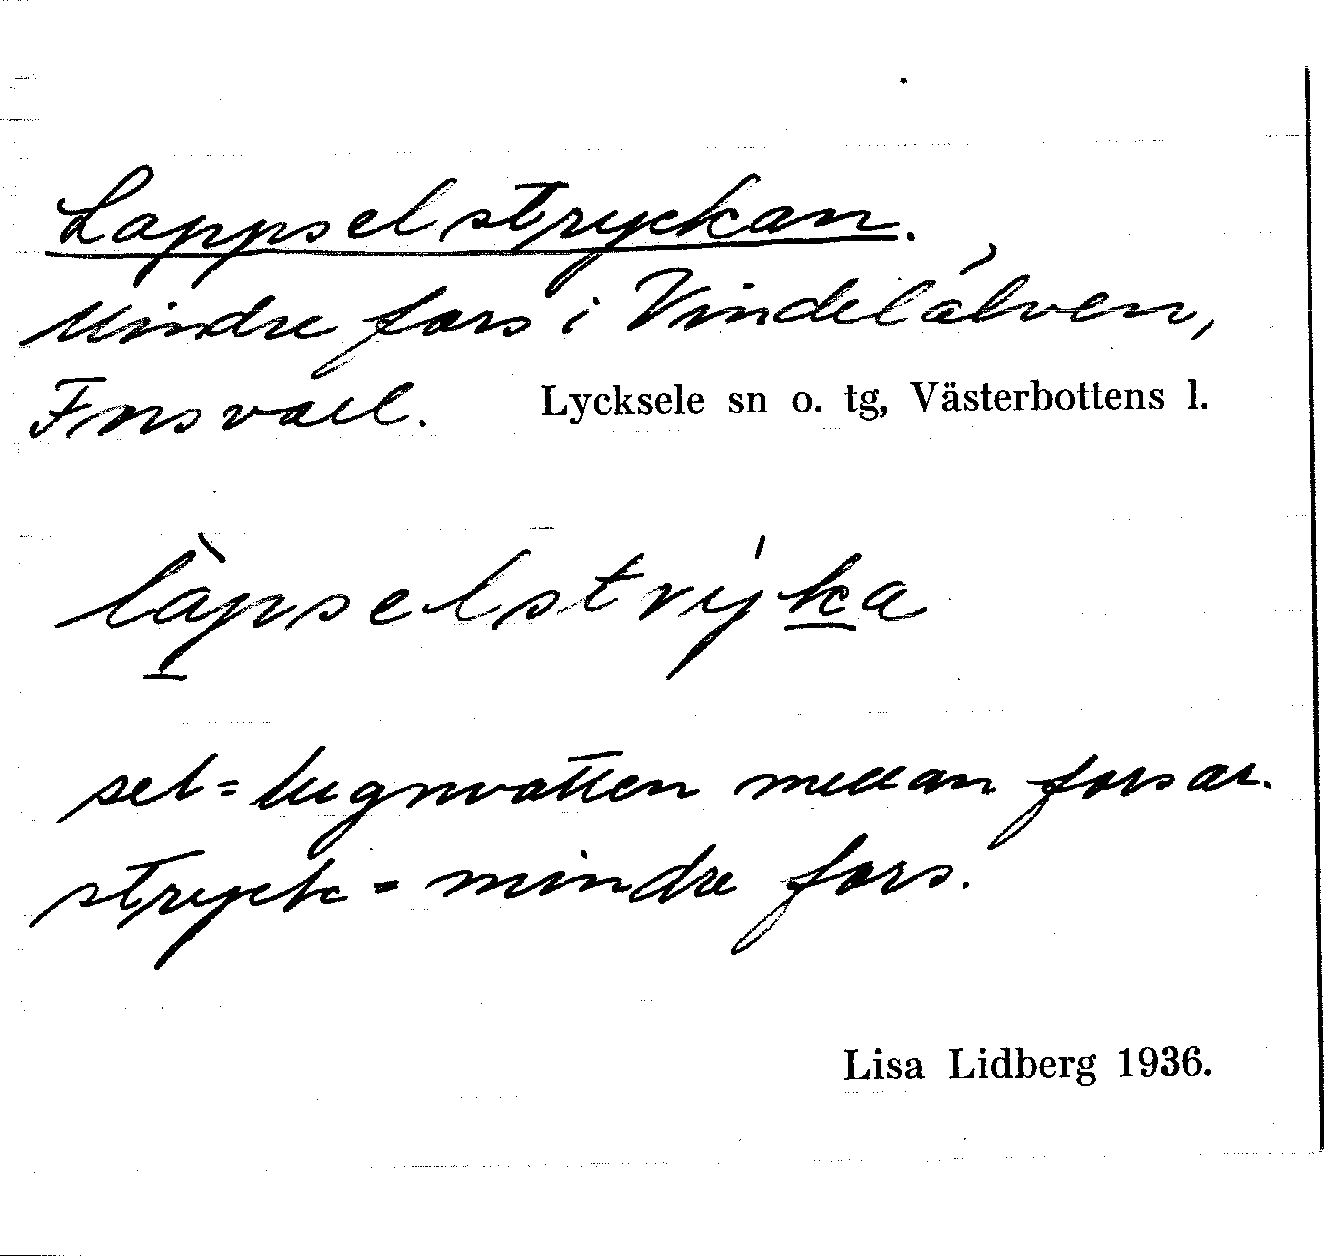 Lappselstryckan.
Mindre fors i Vindelälven,
Forsvall. Lycksele sn o. tg, Västerbottens l.
làpselstrýka
sel = lugnvatten mellan forsar.
stryck = mindre fors.
Lisa Lidberg 1936.